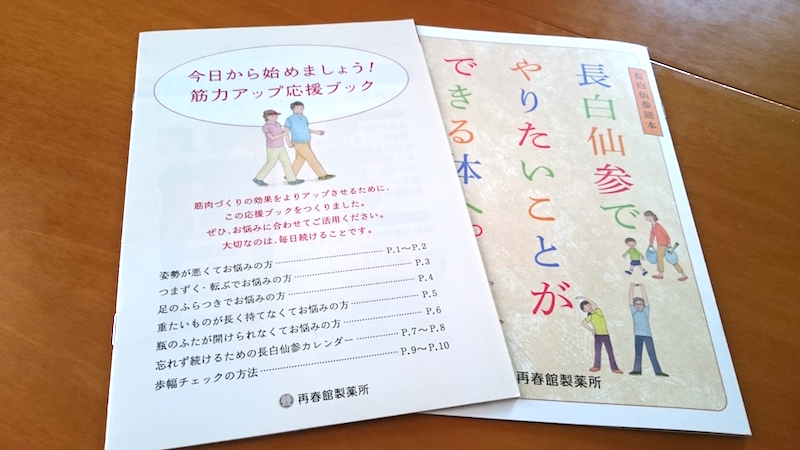 今日から始めましょう!
筋力アップ応援ブック
筋肉づくりの効果をよりアップさせるために、
この応援ブックをつくりました。
ぜひ、お悩みに合わせてご活用ください。
大切なのは、毎日続けることです。
姿勢が悪くてお悩みの方 P.1〜P.2
つまずく・転ぶでお悩みの方 P.3
足のふらつきでお悩みの方 P.4
重たいものが長く持てなくてお悩みの方 P.5
瓶のふたが開けられなくてお悩みの方 P.6
忘れず続けるための長白仙参カレンダー P.7〜P.8
歩幅チェックの方法 P.9〜P.10
再春館製薬所
長白仙参読本
長白仙参で
やりたいことが
できる体へ。
再春館製薬所